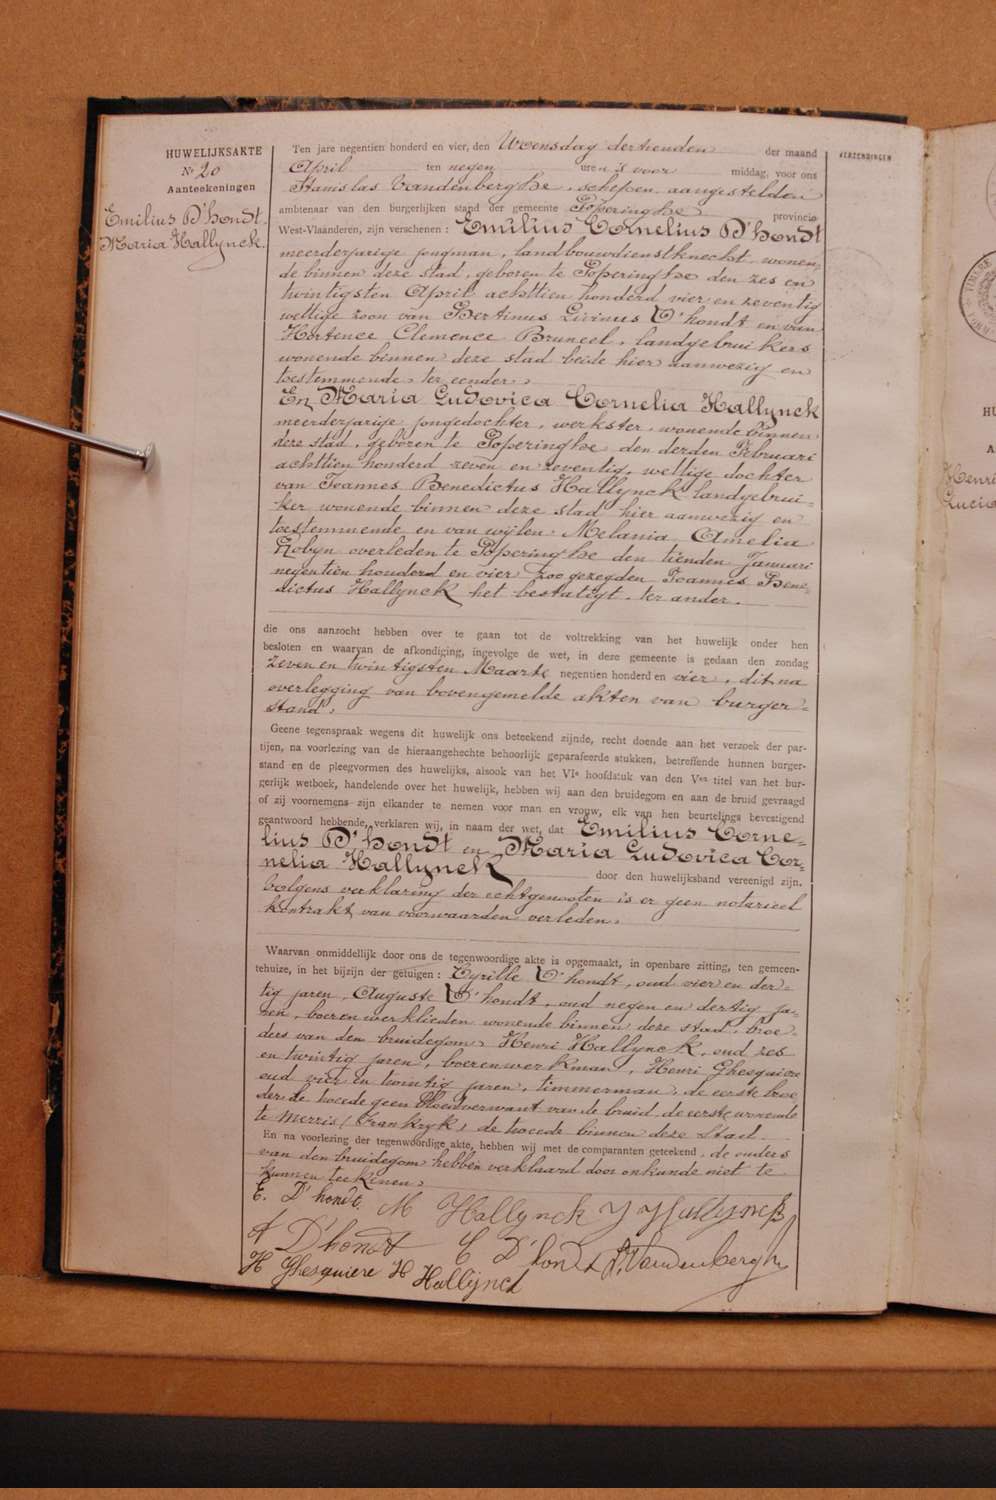 HUWELIJKSAKTE
No 20
Aanteekeningen
Emilius D'hondt.
Maria Hallynck.
Ten jare negentien honderd en vier, den Woensdag dertienden der maand
April ten negen uren 's voor middag, voor ons
Stanislas Vandenberghe, schepen aangestelden
ambtenaar van den burgerlijken stand der gemeente Poperinghe provincie
West-Vlaanderen, zijn verschenen : Emilius Cornelius D'hondt
meerderjarige jongman, landbouwdienstknecht, wonen-
de binnen deze stad, geboren te Poperinghe den zes en
twintigsten April achttien honderd vier en zeventig
wettige zoon van Bertinus Livinus D'hondt en van
Hortence Clemence Bruneel, landgebruikers
wonende binnen deze stad beide hier aanwezig en
toestemmende, ter eender,
En Maria Ludovica Cornelia Hallynck
meerderjarige jongedochter, werkster, wonende binnen
deze stad, geboren te Poperinghe den derden Februari
achttien honderd zeven en zeventig, wettige dochter
van Joannes Benedictus Hallynck landgebrui-
ker wonende binnen deze stad hier aanwezig en
toestemmende en van wijlen Melania Amelia
Robyn overleden te Poperinghe den tienden Januari
negentien honderd en vier zoo gezegden Joannes Bene-
dictus Hallynck het bestatigt. ter ander.
die ons aanzocht hebben over te gaan tot de voltrekking van het huwelijk onder hen
besloten en waarvan de afkondiging, ingevolge de wet, in deze gemeente is gedaan den zondag
zeven en twintigsten Maarte negentien honderd en vier, dit na
overlegging van bovengemelde akten van burger-
stand.
Geene tegenspraak wegens dit huwelijk ons beteekend zijnde, recht doende aan het verzoek der par-
tijen, na voorlezing van de hieraangehechte behoorlijk geparafeerde stukken, betreffende hunnen burger-
stand en de pleegvormen des huwelijks, alsook van het VIe hoofdstuk van den Ven titel van het bur-
gerlijk wetboek, handelende over het huwelijk, hebben wij aan den bruidegom en aan de bruid gevraagd
of zij voornemens zijn elkander te nemen voor man en vrouw, elk van hen beurtelings bevestigend
geantwoord hebbende, verklaren wij, in naam der wet, dat Emilius Corne-
lius D'hondt en Maria Ludovica Cor-
nelia Hallynck door den huwelijksband vereenigd zijn.
Volgens verklaring der echtgenooten is er geen notarieel
kontrakt van voorwaarden verleden.
Waarvan onmiddellijk door ons de tegenwoordige akte is opgemaakt, in openbare zitting, ten gemeen-
tehuize, in het bijzijn der getuigen : Cyrille D'hondt, oud vier en der-
tig jaren, Auguste D'hondt, oud negen en dertig ja-
ren, boerenwerklieden wonende binnen deze stad, broe-
ders van den bruidegom, Henri Hallynck, oud zes
en twintig jaren, boerenwerkman, Henri Ghesquiere
oud vier en twintig jaren, timmerman, de eerste broe-
der de tweede geen bloedverwant van de bruid de eerste wonende
te Merris (Frankrijk) de tweede binnen deze stad
En na voorlezing der tegenwoordige akte, hebben wij met de comparanten geteekend, de ouders
van den bruidegom hebben verklaard door onkunde niet te
kunnen teekenen.
E. D'hondt. M Hallynck J Hallynck
A D'hondt C D'hondt S. Vandenberghe
H Ghesquiere H Hallynck
VERZENDINGEN
TIMBRE
HU
A
Henri
Lucia